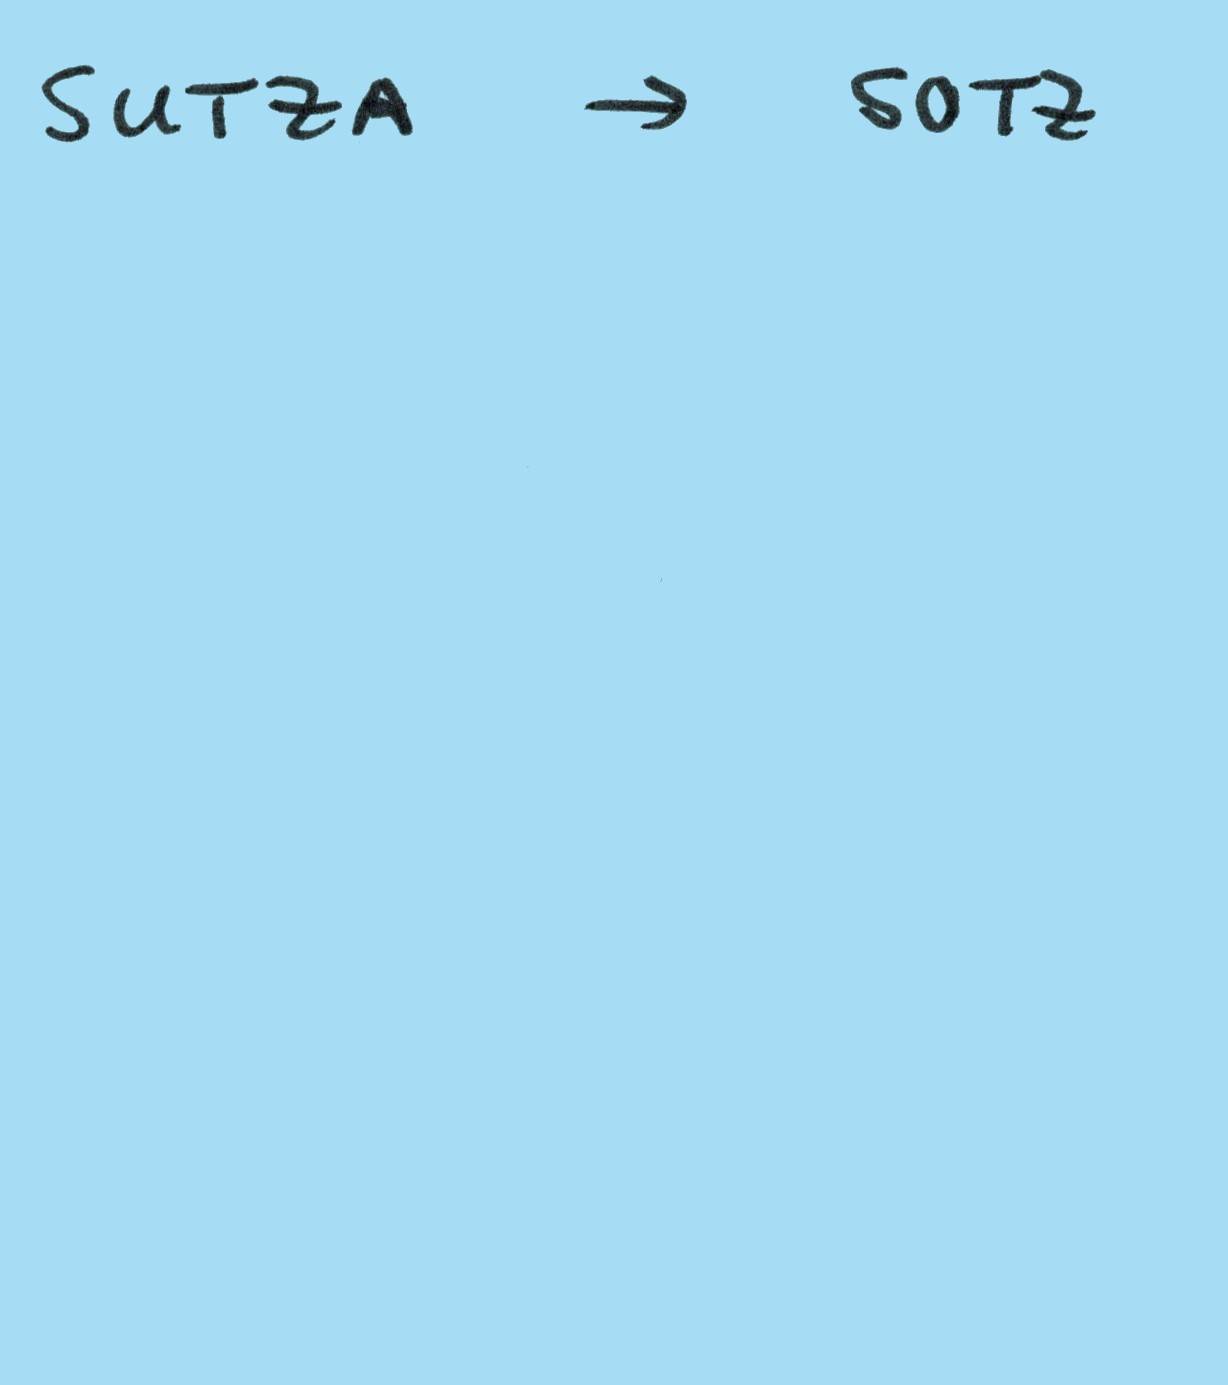 SUTZA → SOTZ